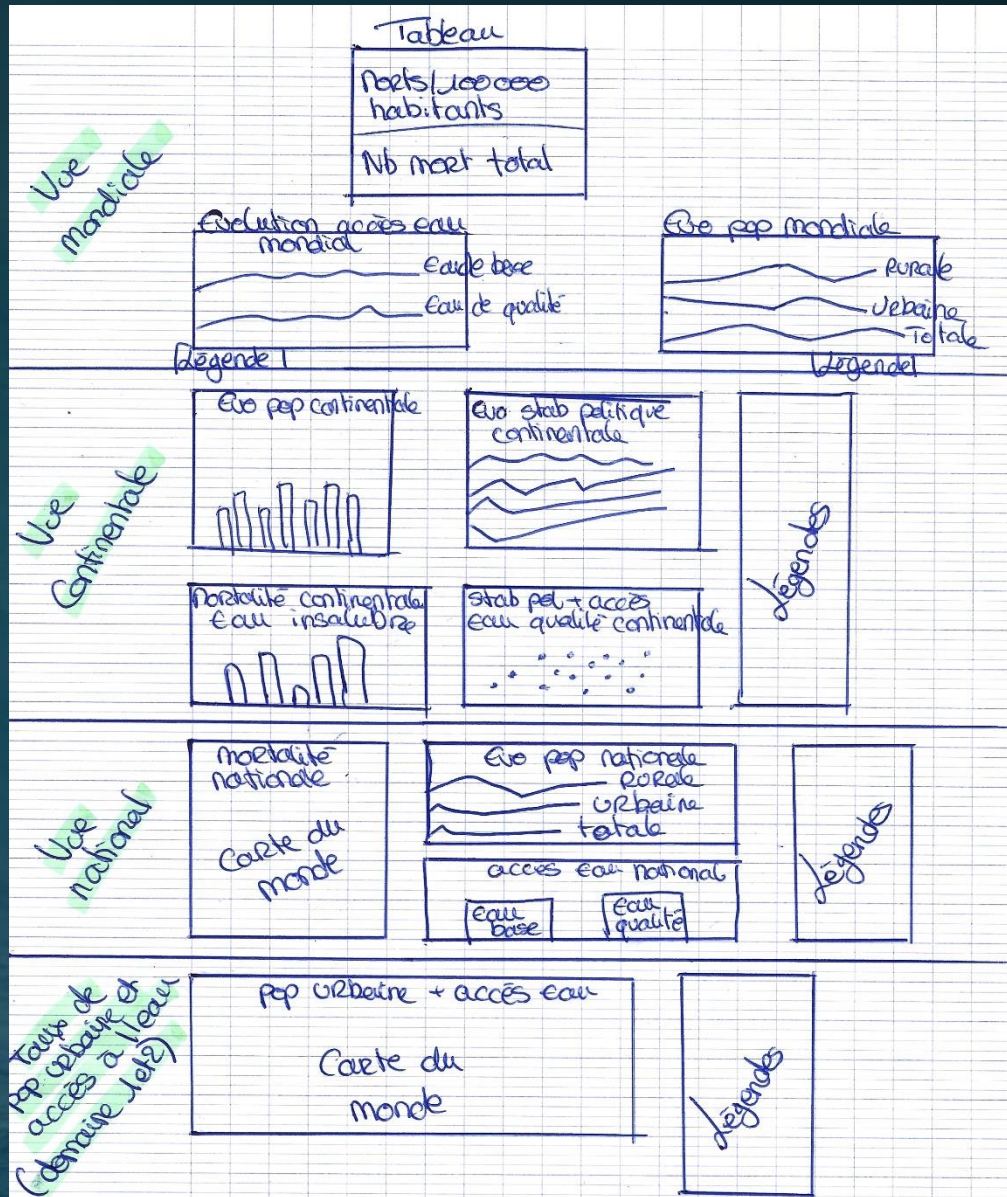 Tableau
Morts/100000
habitants
Nb mort total
Vue
mondiale
Evolution accès eau
mondial
Eau de base
Eau de qualité
Légende
Evo pop mondiale
Rurale
Urbaine
Totale
Légende
Vue
Continentale
Evo pop continentale
Evo stab politique
continentale
Mortalité continentale
Eau insalubre
stab pol + accès
eau qualité continentale
Légendes
Vue
national
mortalité
nationale
Carte du
monde
Evo pop nationale
Rurale
Urbaine
totale
accès eau national
Eau
base
Eau
qualité
Légendes
Taux de
pop urbaine et
accès à l'eau
(domaine 1et2)
pop urbaine + accès eau
Carte du
monde
Légendes